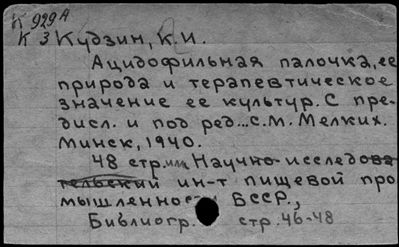 К 929 А
К 3 Кудзин, К.И.
Ацидофильная палочка, ее
природа и терапевтическое
значение ее культур. С пре-
дисл. и под ред... С.М. Мелких.
Минск, 1940.
48 стр. илл. Научно-исследова-
тельский ин-т пищевой про
мышленност БССР.,
Библиогр. стр. 46-48